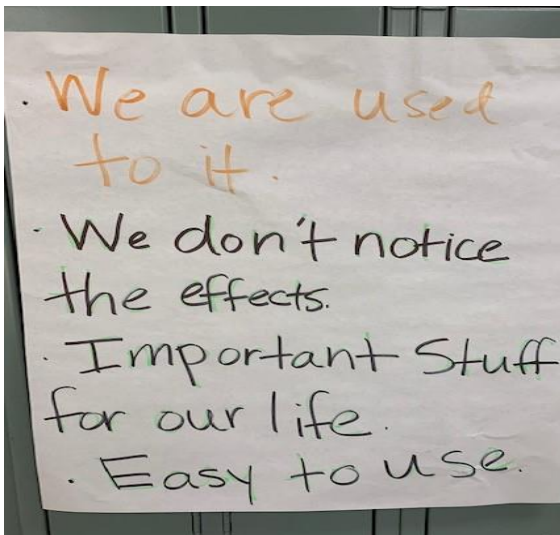 · We are used
to it.
· We don't notice
the effects.
· Important Stuff
for our life.
· Easy to use.